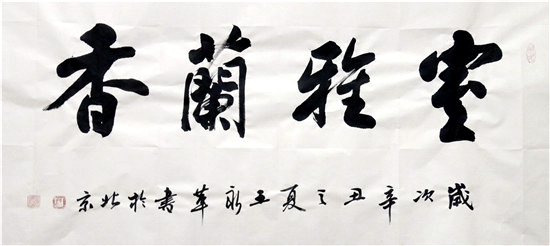 室雅蘭香
歲次辛丑之夏王永華書於北京